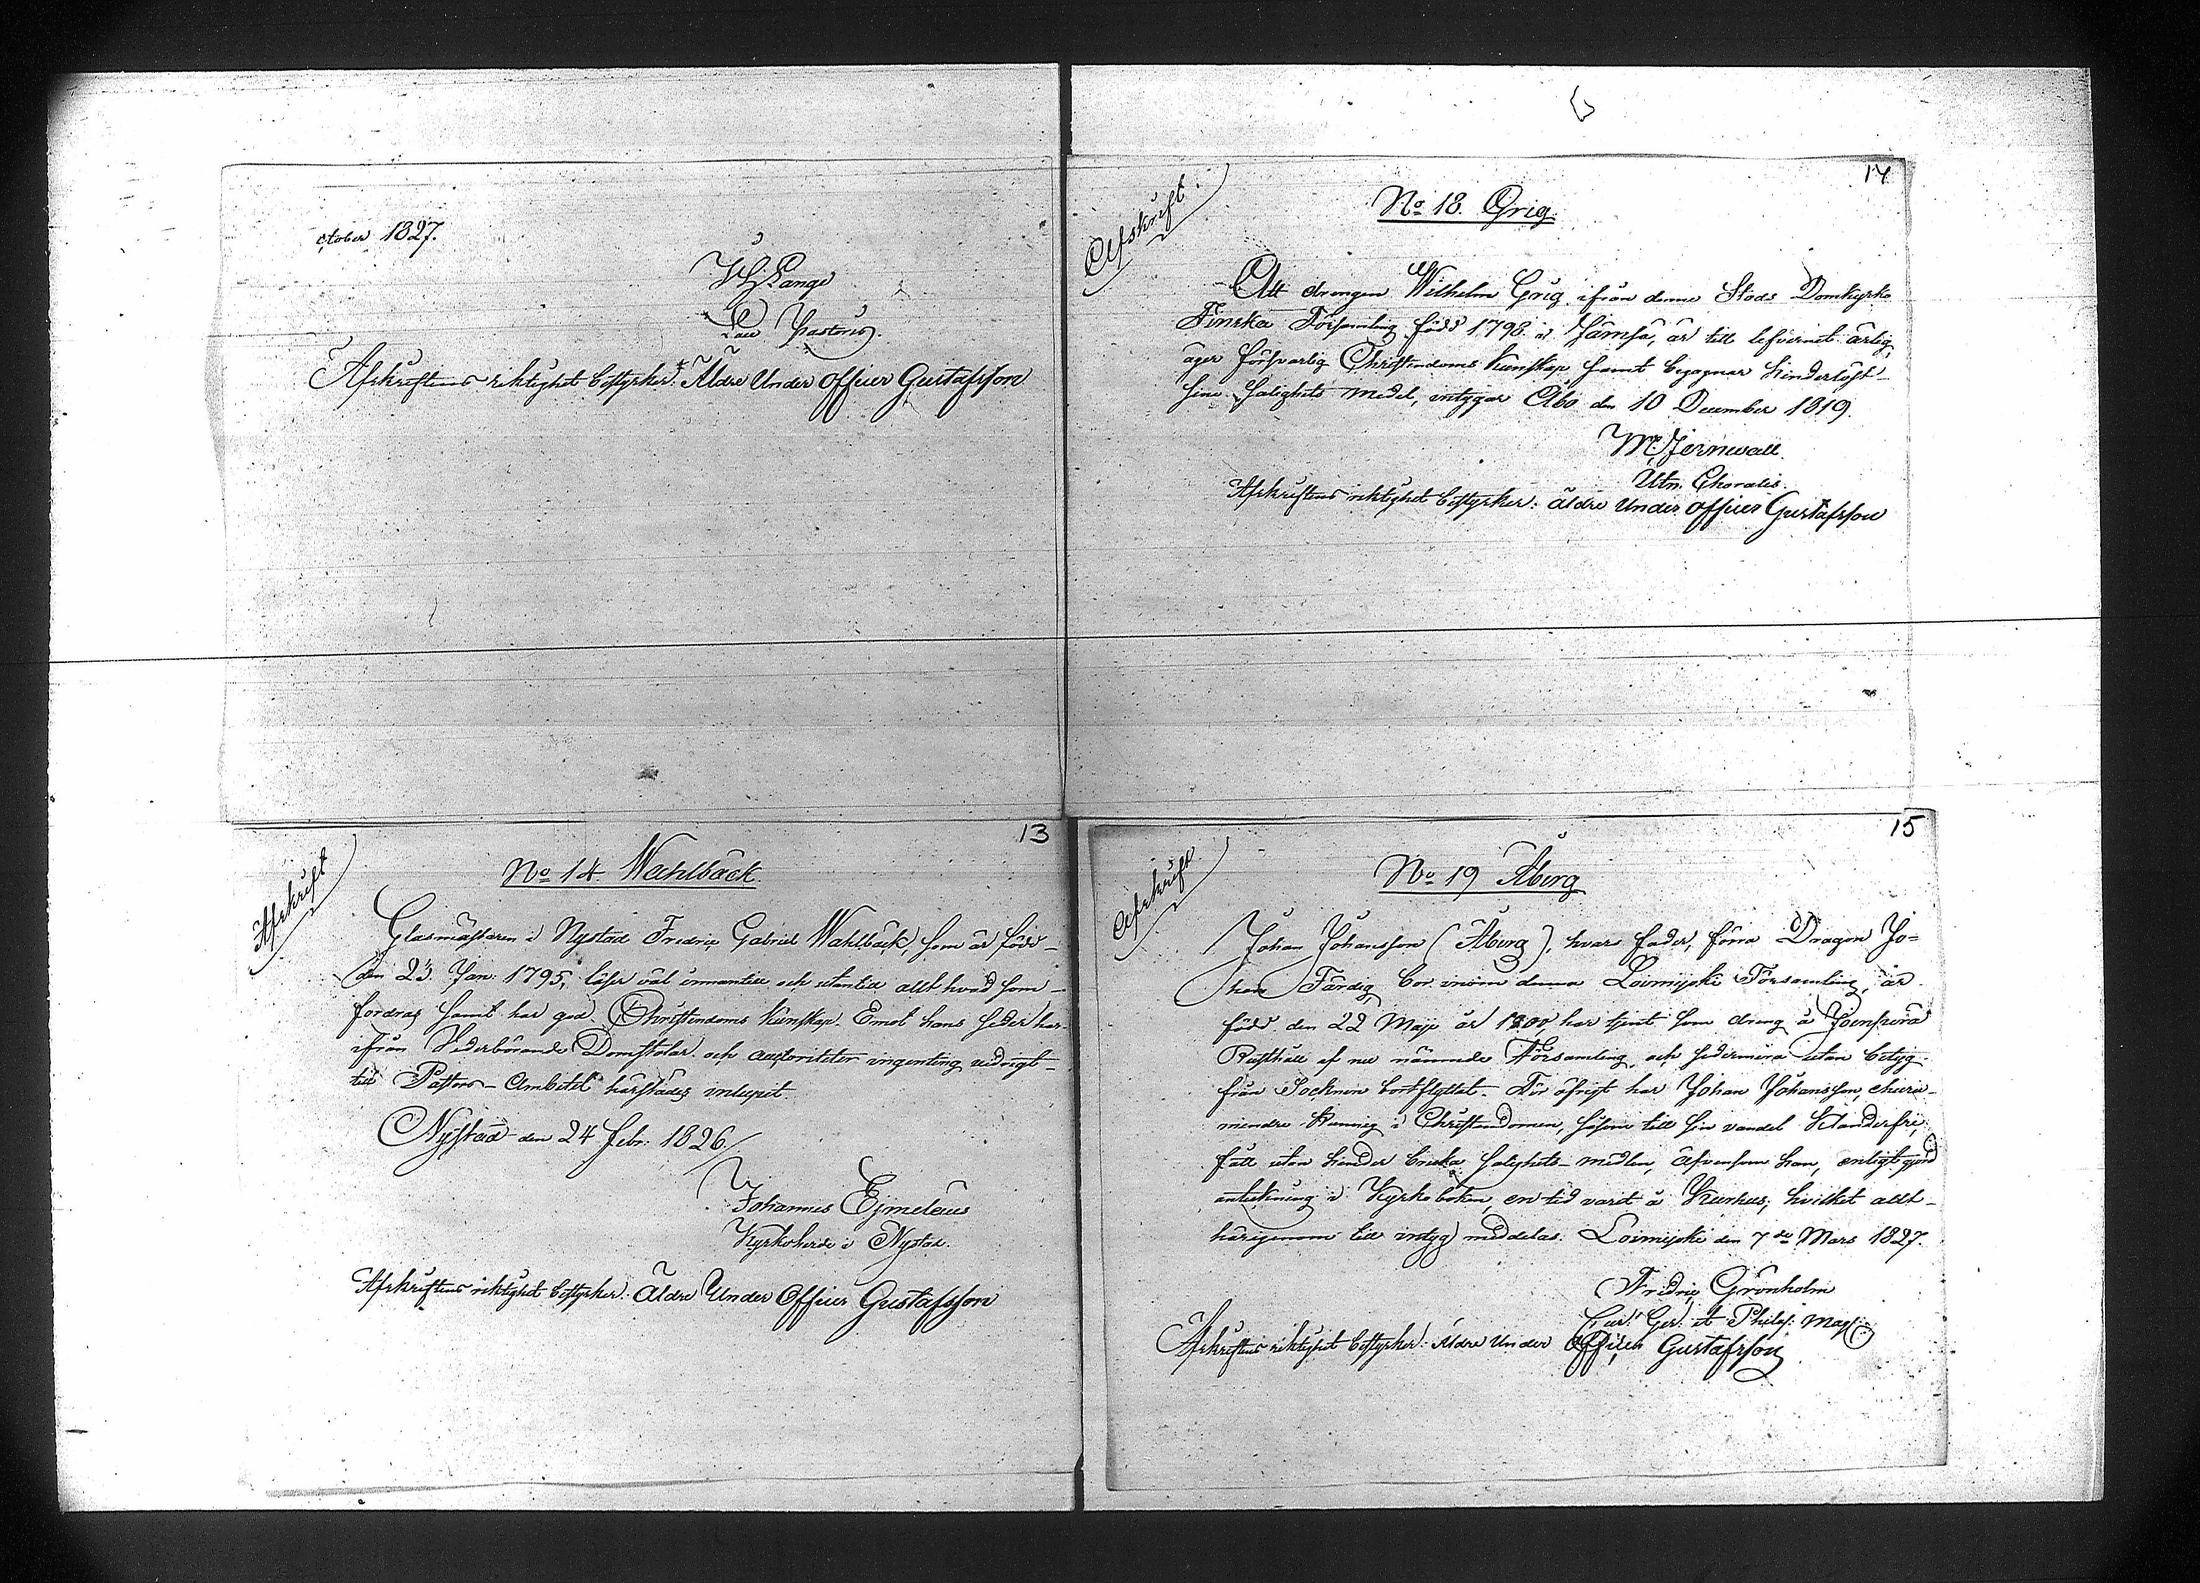 ctober 1827.
Lange
Pastoris.
Afskriftens riktighet bestyrker: Äldre Under Officer Gustafsson
14
Afskrift.
No 18. Grig.
Att drengen Wilhelm Grig ifrån denne Stads Domkyrko
Finska Församling född 1798 i Jämsä, är till lefvernet ärlig,
äger försvarlig Christendoms Kunskap samt begagnar hinderlöst
sine Salighets medel, intygar Åbo den 10 December 1819.
Jernwall.
Utn. Choralis.
Afskriftens riktighet bestyrker: äldre Under officer Gustafsson
13
Afskrift
No 14. Wahlbäck.
Glasmästaren i Nystad Fredric Gabriel Wahlbäck, som är född
den 23. Jan: 1795, läser väl innantill och utantill allt hvad som
fordras samt har god Christendoms Kunskap. Emot hans seder har
ifrån Vederbörande Domstolar och auctoriteter ingenting vidrigt
till Pastors-Ambetet härstädes inlupit.
Nystad den 24 Febr: 1826
Johannes Ejmelæus
Kyrkoherde i Nystad.
Afskriftens riktighet bestyrker: Äldre Under Officer Gustafsson
15
Afskrift.
No 19 Åberg
Johan Johansson (Åberg), hvars fader, förra Dragon Jo=
han Färdig bor inom denna Loimijoki Församling, är
född den 22 Maji år 1800, har tjent som dreng å
Rusthåll af nu nämnde Församling, och sedermera utan betyg
från Socknen bortflyttat. För öfrigt har Johan Johansson,
mindre kunnig i Christendomen, såsom till sin vandel klanderfri,
fått utan hinder bruka salighets-medlen, äfvensom han, enligt gjord
anteckning i Kyrkoboken, en tid varit å Kurhus; hvilket allt
härigenom till intyg meddelas. Loimijoki den 7de Mars 1827.
Fredric Grönholm
et Philos: Mag:
Afskriftens riktighet bestyrker: Äldre Under Officer Gustafsson